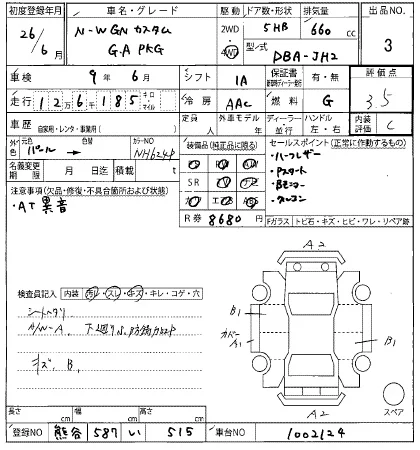 初度登録年月
車名・グレード
駆動
ドア数・形状
排気量
出品NO
26/6月
N-WGN カスタム
G.A PKG
2WD
4WD
5HB
660cc
型式
DBA-JH2
3
車検
9年6月
シフト
IA
保証書
有・無
評価点
3.5
走行
12万6千185
キロ
マイル
冷房
AAC
燃料
G
車歴
自家用・レンタ・事業用( )
定員
人
外車モデル
年
ディーラー
並行
ハンドル
左・右
内装評価
C
外色
元色
パール
色替
カラーNO
NH624P
装備品(純正品に限る)
セールスポイント(正常に作動するもの)
・ハーフレザー
・Pスタート
・Bモニター
名義変更期限
月 日迄
積載
t
SR
注意事項(欠品・修復・不具合箇所および状態)
・AT異音
R券
8680円
Fガラス
トビ石・キズ・ヒビ・ワレ・リペア跡
検査員記入
内装
汚レ・スレ・キズ・キレ・コゲ・穴
A2
B1
カバー
A1
B1
A2
キズ B1
スペア
長さ
cm
幅
cm
高さ
cm
登録NO
熊谷 587 い 515
車台NO
1002124